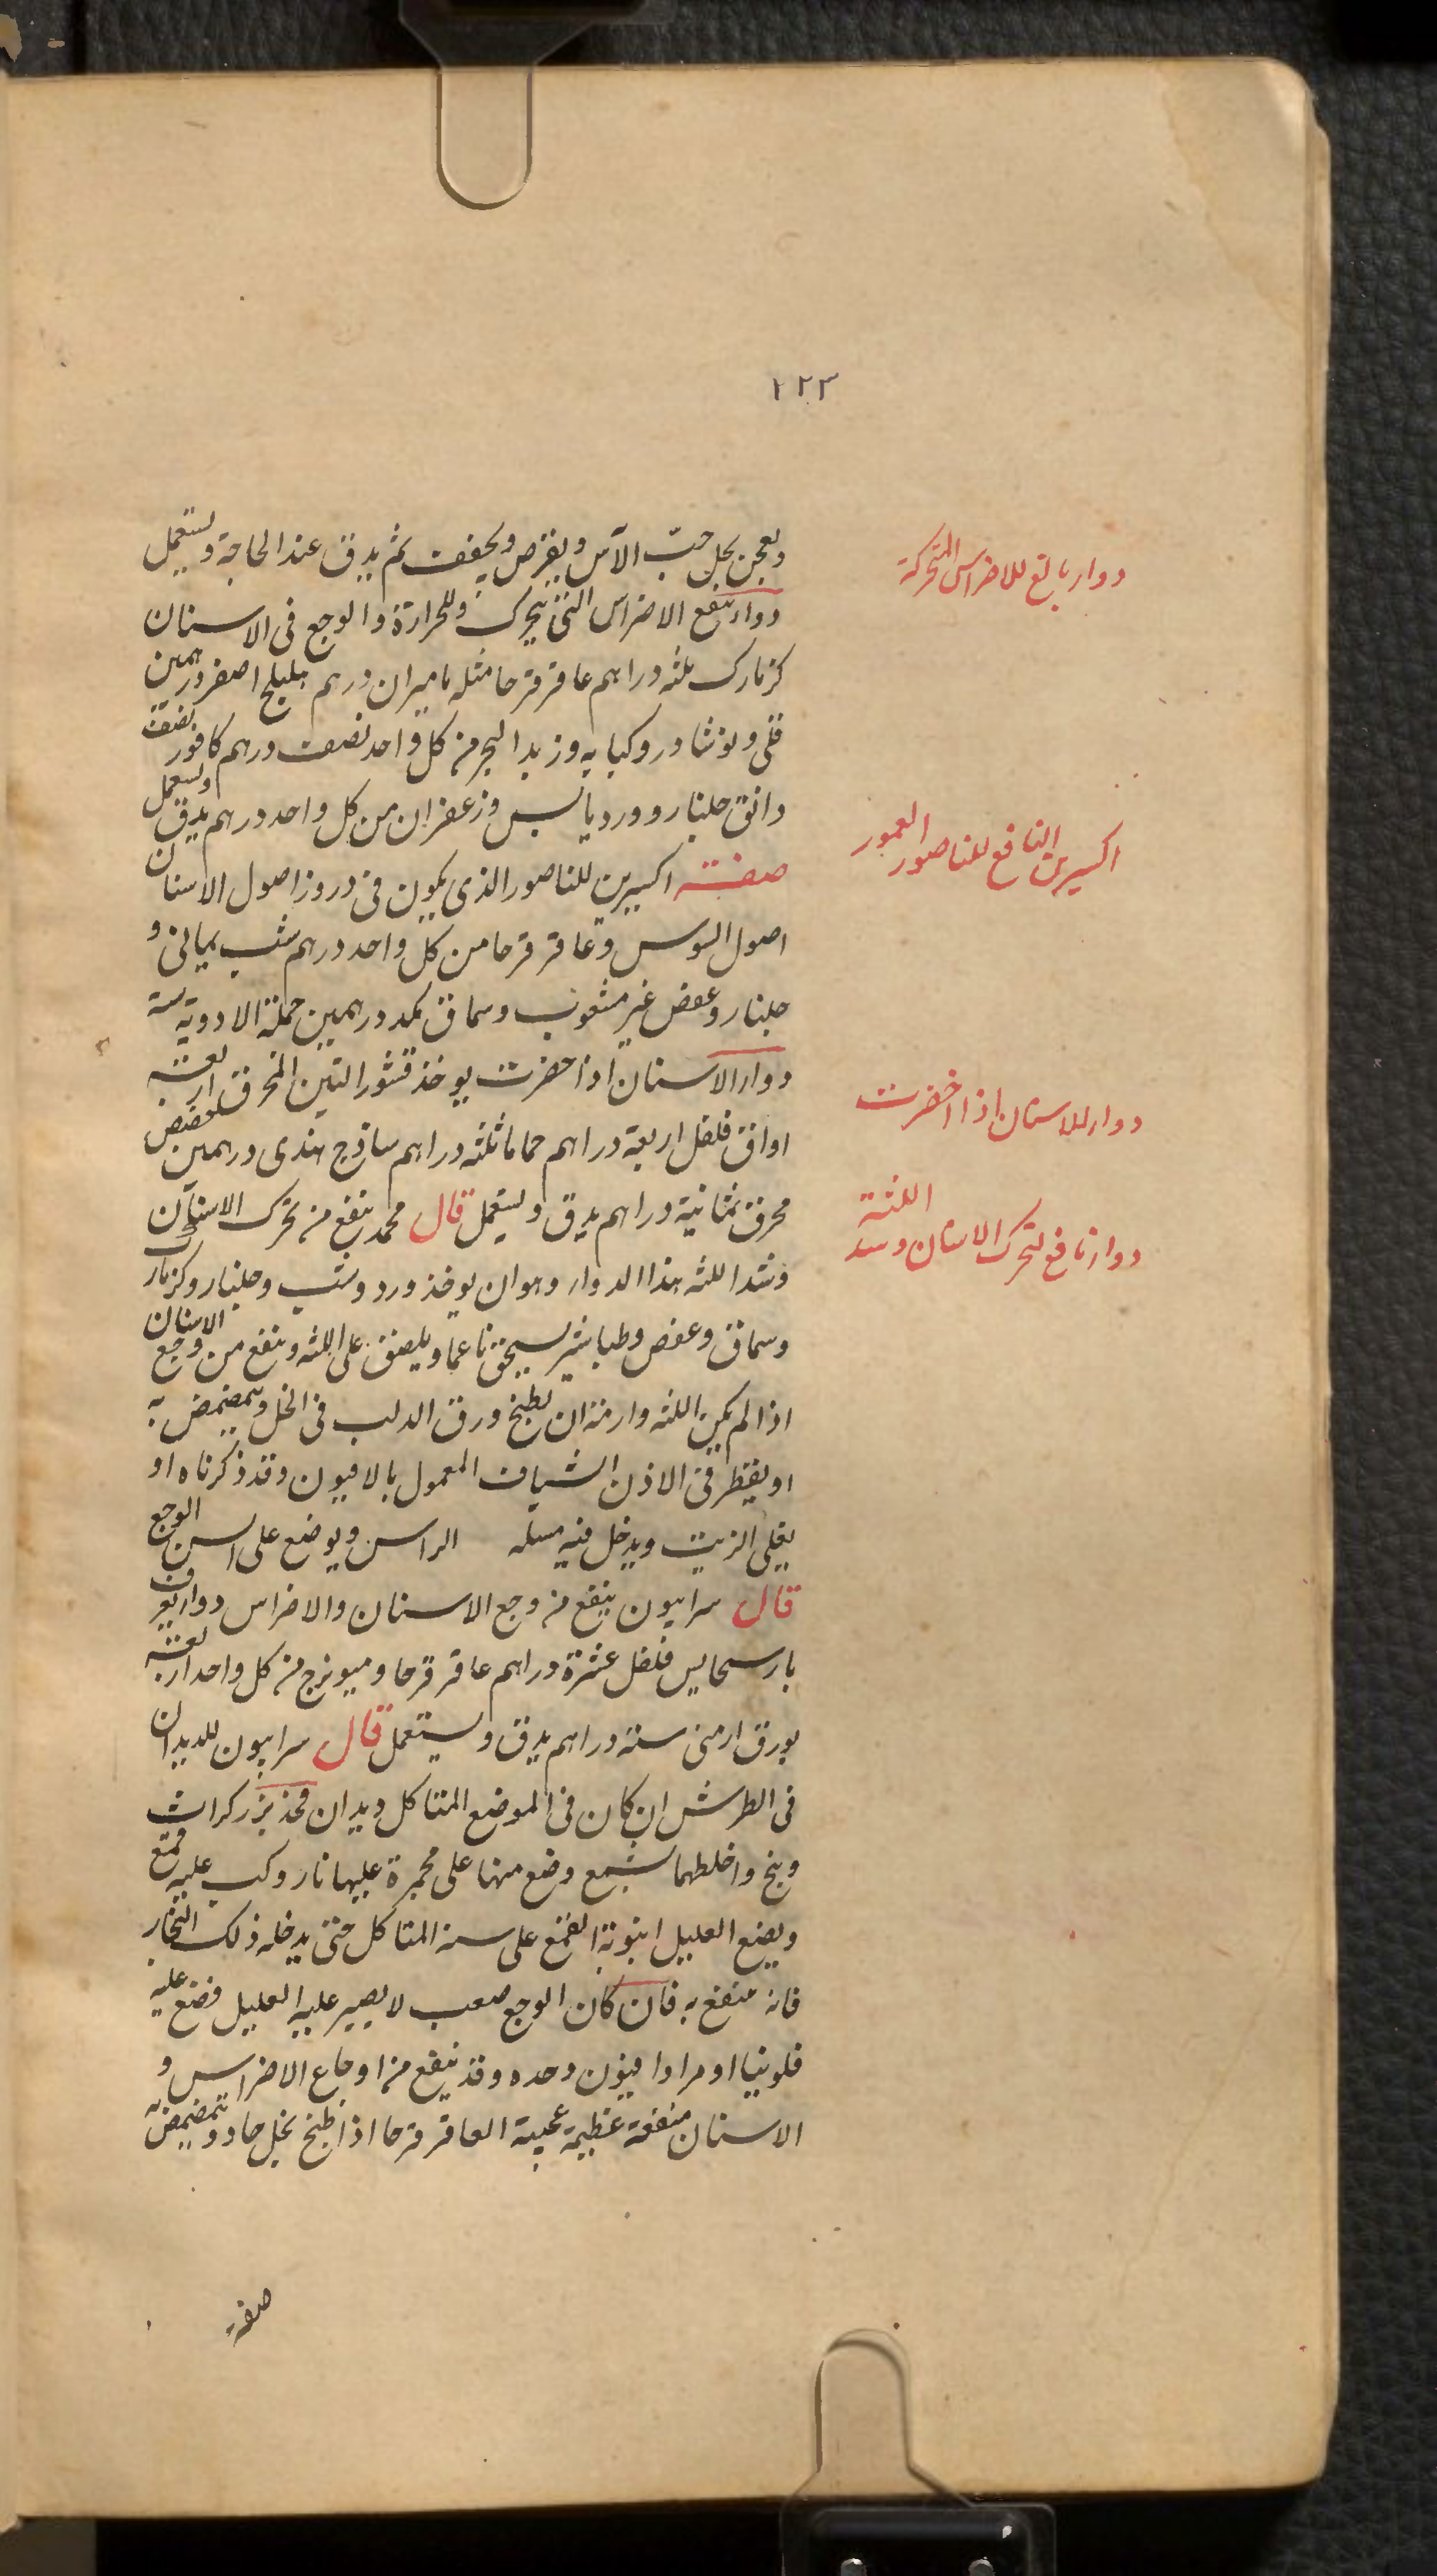 ١٢٣
ويعجن بخل حبّ الآس ويقرص ويجفف ثم يدق عند الحاجة ويستعمل
دواء ينفع الاضراس التى تتحرك وللحرارة والوجع فى الاسنان
كزمازك ثلثه دراهم عاقرقرحا مثله ماميران درهم هليلج اصفر درهمين
قلى ونوشادر وكبابه وزبد البحر من كل واحد نصف درهم كافور نصف
دانق جلنار وورد يابس وزعفران من كل واحد درهم يدق ويستعمل
صفة اكسيرين للناصور الذى يكون فى دروز اصول الاسنان
اصول السوس وعاقرقرحا من كل واحد درهم شب يمانى و
جلنار وعفص غير مثقوب وسماق كمد درهمين جملة الادوية ستة
دواء الاسنان اذا خضرت يوخذ قشور التين المحرق اربعة
اواق فلفل اربعة دراهم حماما ثلثه دراهم ساذج هندى درهمين
محرق ثمانية دراهم يدق ويستعمل قال محمد ينفع من تحرك الاسنان
وشد اللثه هذا الدواء وهو ان يوخذ ورد وشب وجلنار وكزمازك
وسماق وعفص وطباشير يسحق ناعما ويلصق على اللثه وينفع من وجع الاسنان
اذا لم يكن اللثه وارمة ان يطبخ ورق الدلب فى الخل ويتمضمض به
او يقطر فى الاذن الشياف المعمول بالافيون وقد ذكرناه او
يغلى الزيت ويدخل فيه مسله الراس ويوضع على السن الوجع
قال سرابيون ينفع من وجع الاسنان والاضراس دواء يعرف
فلفل عشرة دراهم عاقرقرحا وميويزج من كل واحد اربعة
بورق ارمنى ستة دراهم يدق ويستعمل قال سرابيون للديدان
فى الطرش ان كان فى الموضع المتاكل ديدان فخذ بزر كراث
وبنج واخلطهما بشمع وضع منها على مجمرة عليها نار وكب عليه قمع
ويضع العليل انبوبة القمع على سنه المتاكل حتى يدخله ذلك البخار
فانه منفع به فان كان الوجع صعب لا يصبر عليه العليل فضع عليه
فلونيا او مرا وافيون وحده وقد ينفع من اوجاع الاضراس و
الاسنان منفعة عظيمة عجيبة العاقرقرحا اذا طبخ بخل حاد وتمضمض به
صفة
دواء بالغ للاضراس المتحركة
اكسيرين النافع للناصور العمور
دواء للاسنان اذا اخضرت
دواء نافع لتحرك الاسنان وشد اللثة